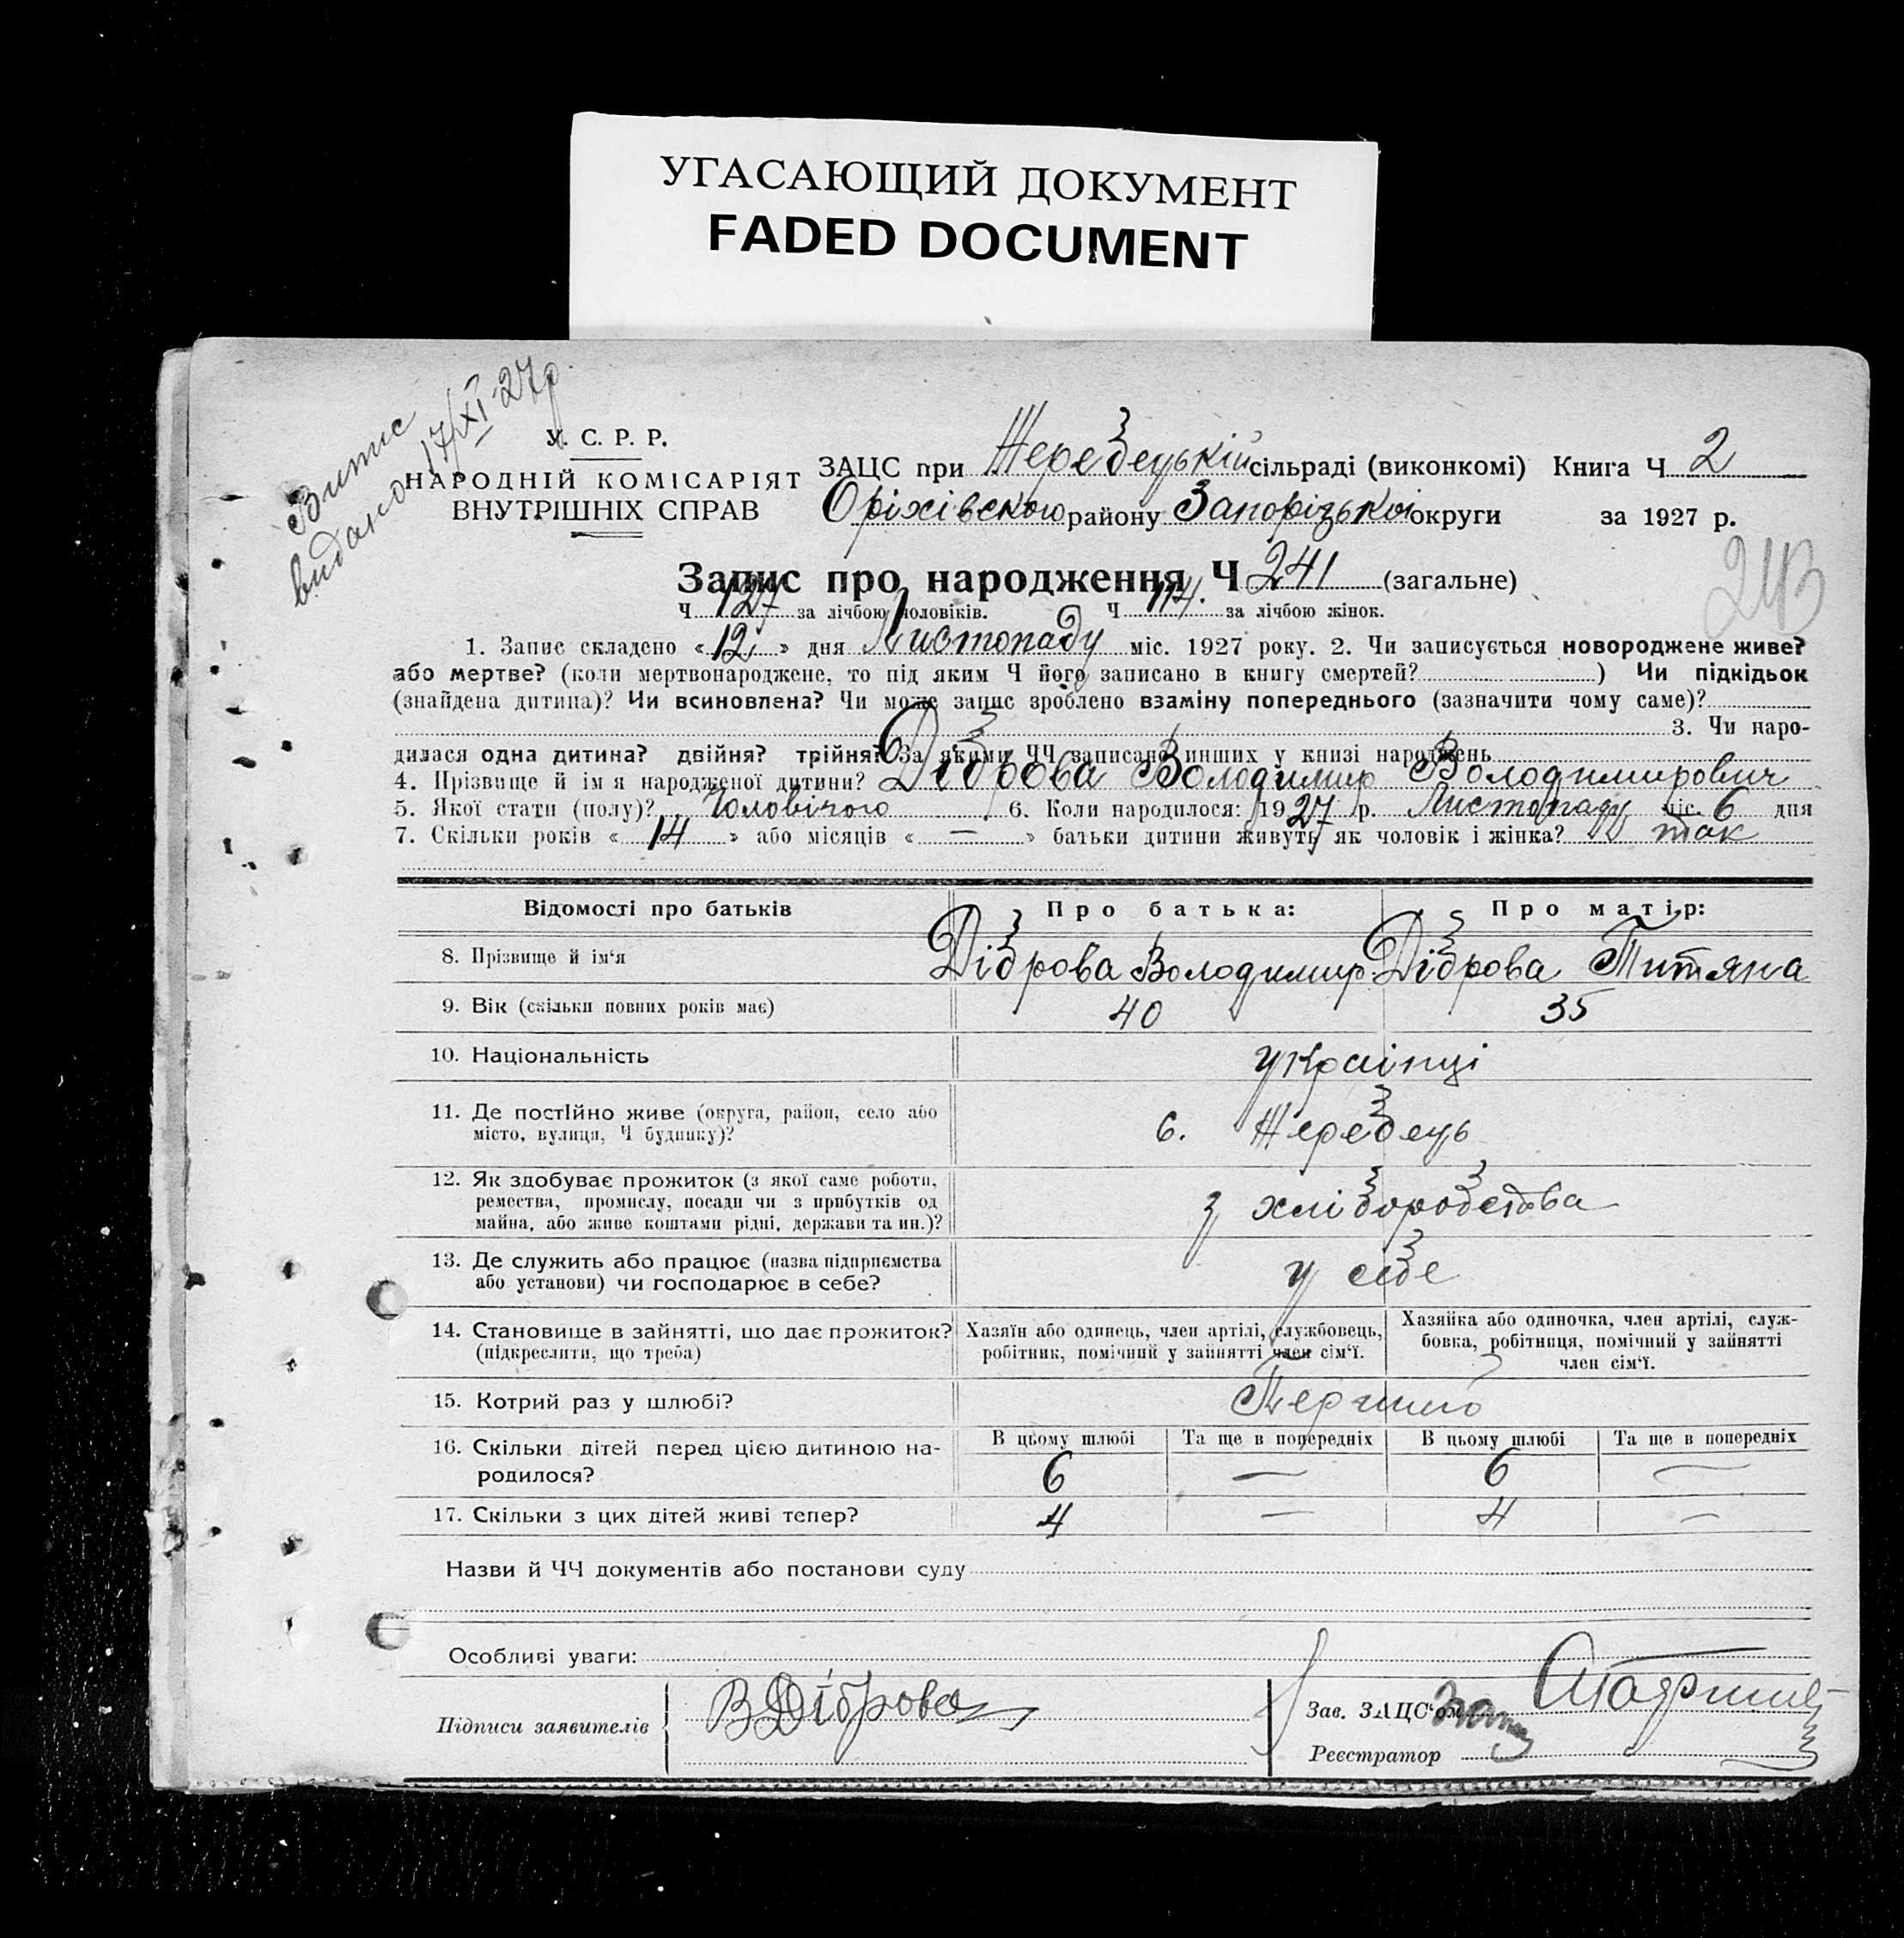 УГАСАЮЩИЙ ДОКУМЕНТ
FADED DOCUMENT
Витис
видано 17/XI-27р
У. С. Р. Р.
НАРОДНІЙ КОМІСАРІЯТ
ВНУТРІШНІХ СПРАВ
ЗАЦС при Жеребецькій сільраді (виконкомі) Книга Ч 2
Оріхівского району Запорізької округи за 1927 р.
Запис про народження Ч 241 (загальне)
243
Ч 127 за лічбою чоловіків. Ч 114. за лічбою жінок.
1. Запис складено «12» дня Листопаду міс. 1927 року. 2. Чи записується новороджене живе?
або мертве? (коли мертвонароджене, то під яким Ч його записано в книгу смертей? ) Чи підкідьок
(знайдена дитина)? Чи всиновлена? Чи може запис зроблено взаміну попереднього (зазначити чому саме)?
3. Чи наро-
дилася одна дитина? двійня? трійня? За якими ЧЧ записано инших у книзі народжень
4. Прізвище й ім я народженої дитини? Діброва Володимир Володимирович
5. Якої стати (полу)? Чоловічого 6. Коли народилося: 1927 р. Листопаду міс. 6 дня
7. Скільки років «14» або місяців «—» батьки дитини живуть як чоловік і жінка? так
Відомості про батьків Про батька: Про матір:
8. Прізвище й ім'я Діброва Володимир Діброва Титяна
9. Вік (скільки повних років має) 40 35
10. Національність українці
11. Де постійно живе (округа, район, село або
місто, вулиця, Ч будинку)? с. Жеребець
12. Як здобуває прожиток (з якої саме роботи,
ремества, промислу, посади чи з прибутків од
майна, або живе коштами рідні, держави та ин.)? з хліборобства
13. Де служить або працює (назва підприємства
або установи) чи господарює в себе? у себе
14. Становище в зайнятті, що дає прожиток?
(підкреслити, що треба)
Хазяїн або одинець, член артілі, службовець,
робітник, помічний у зайнятті член сім'ї.
Хазяйка або одиночка, член артілі, служ-
бовка, робітниця, помічний у зайнятті
член сім'ї.
15. Котрий раз у шлюбі? Перший
16. Скільки дітей перед цією дитиною на-
родилося?
В цьому шлюбі Та ще в попередніх В цьому шлюбі Та ще в попередніх
6 — 6 —
17. Скільки з цих дітей живі тепер? 4 — 4 —
Назви й ЧЧ документів або постанови суду
Особливі уваги:
Підписи заявителів ВДіброва
Зав. ЗАЦС'ом
Реєстратор